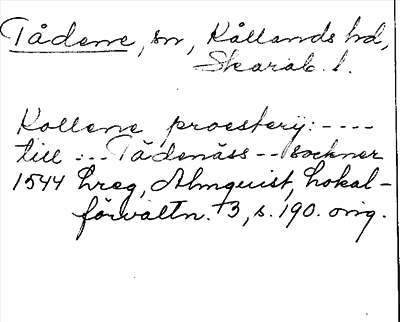 Tådene, sn, Kållands hd,
Skarab. l.
Kollene proestery: ----
till :-- Tådenäss -- sockner
1544 hreg, Almquist, Lokal-
förvaltn. 3, s. 190. orig.